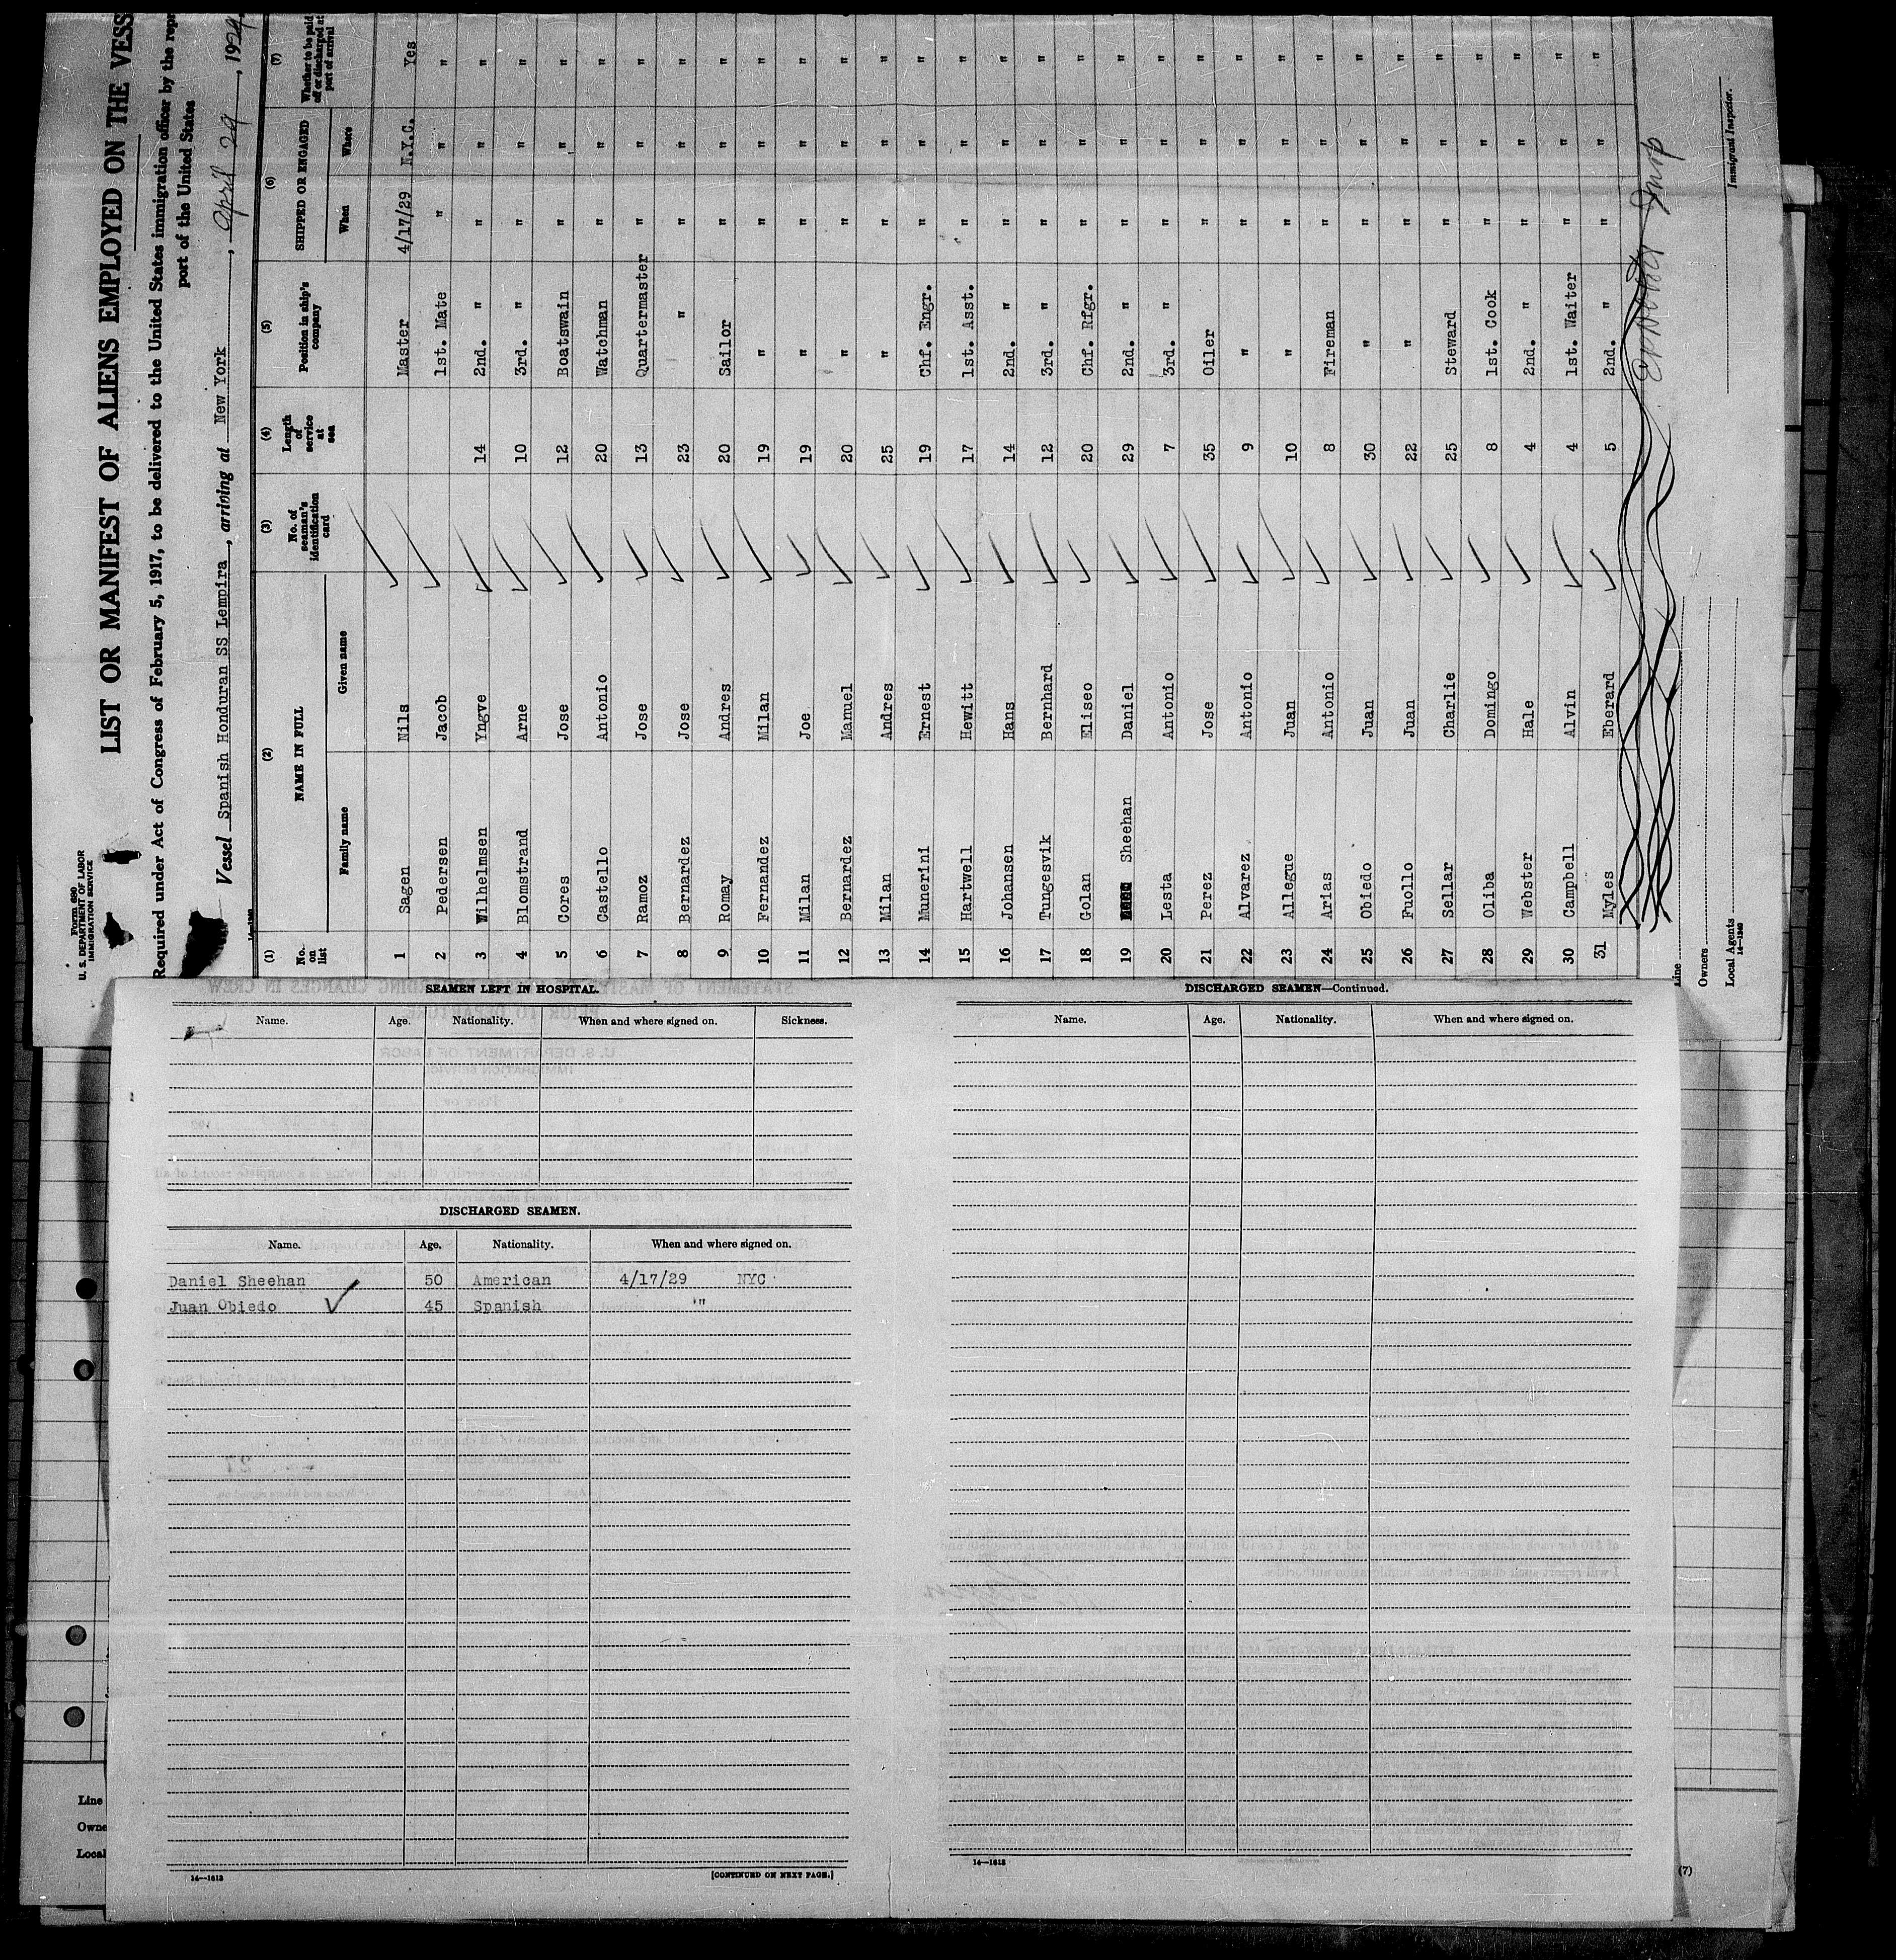 Form 680
U. S. DEPARTMENT OF LABOR
IMMIGRATION SERVICE
LIST OR MANIFEST OF ALIENS EMPLOYED ON THE VESS
Required under Act of Congress of February 5, 1917, to be delivered to the United States immigration officer by the repr
port of the United States
Vessel Spanish Honduran SS Lempira, arriving at New York, April 29, 1929
(1) (2) (3) (4) (5) (6) (7)
No. on list NAME IN FULL No. of seaman's identification card Length of service at sea Position in ship's company SHIPPED OR ENGAGED Whether to be paid off or discharged at port of arrival
Family name Given name When Where
1 Sagen Nils Master 4/17/29 N.Y.C. Yes
2 Pedersen Jacob 1st. Mate " " "
3 Wilhelmsen Yngve 14 2nd. " " " "
4 Blomstrand Arne 10 3rd. " " " "
5 Cores Jose 12 Boatswain " " "
6 Castello Antonio 20 Watchman " " "
7 Ramoz Jose 13 Quartermaster " " "
8 Bernardez Jose 23 " " " "
9 Romay Andres 20 Sailor " " "
10 Fernandez Milan 19 " " " "
11 Milan Joe 19 " " " "
12 Bernardez Manuel 20 " " " "
13 Milan Andres 25 " " " "
14 Munerini Ernest 19 Chf. Engr. " " "
15 Hartwell Hewitt 17 1st. Asst. " " "
16 Johansen Hans 14 2nd. " " " "
17 Tungesvik Bernhard 12 3rd. " " " "
18 Golan Eliseo 20 Chf. Rfgr. " " "
19 Sheehan Daniel 29 2nd. " " " "
20 Lesta Antonio 7 3rd. " " " "
21 Perez Jose 35 Oiler " " "
22 Alvarez Antonio 9 " " " "
23 Allegue Juan 10 " " " "
24 Arias Antonio 8 Fireman " " "
25 Obiedo Juan 30 " " " "
26 Fuollo Juan 22 " " " "
27 Sellar Charlie 25 Steward " " "
28 Oliba Domingo 8 1st. Cook " " "
29 Webster Hale 4 2nd. " " " "
30 Campbell Alvin 4 1st. Waiter " " "
31 Myles Eberard 5 2nd. " " " "
Line
Owners
Local Agents
14—1240
Immigrant Inspector.
SEAMEN LEFT IN HOSPITAL.
Name. Age. Nationality. When and where signed on. Sickness.
DISCHARGED SEAMEN.
Name. Age. Nationality. When and where signed on.
Daniel Sheehan 50 American 4/17/29 NYC
Juan Obiedo 45 Spanish "
14—1613
[CONTINUED ON NEXT PAGE.]
DISCHARGED SEAMEN—Continued.
Name. Age. Nationality. When and where signed on.
14—1613
Line
Owne
Local
(7)